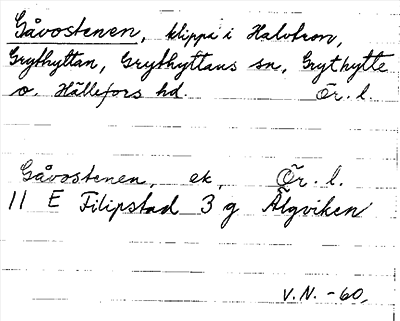 Gåvostenen, klippa i Halvtron,
Grythyttan, Grythyttans sn, Grythytte
o. Hällefors hd. Ör. l.
Gåvostenen, ek, Ör. l.
11 E Filipstad 3 g Älgviken
V.N. -60.